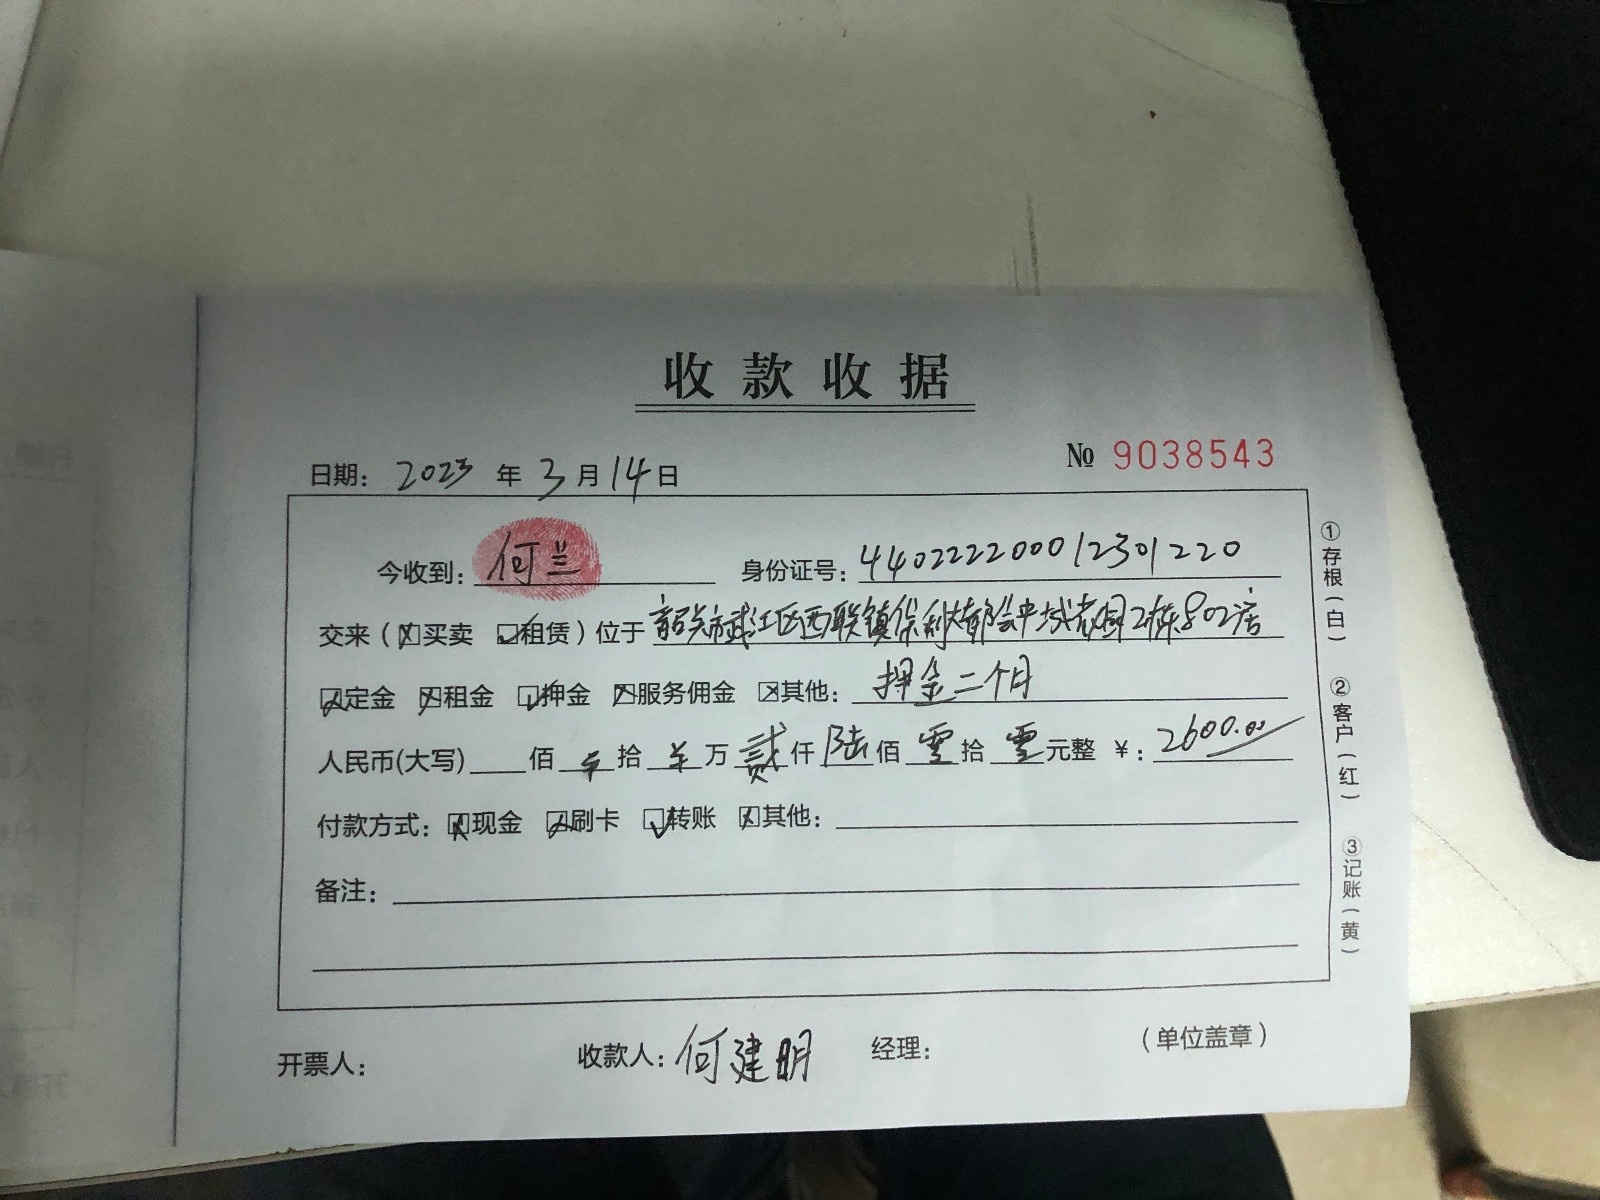 收款收据
日期: 2023 年 3 月 14 日
№ 9038543
今收到: 何兰 身份证号: 440222200012301220
交来(☒买卖 ☑租赁)位于 韶关市武江区西联镇保利大都会中域花园2栋802房
☒定金 ☒租金 ☑押金 ☒服务佣金 ☒其他: 押金二个月
人民币(大写) 佰 拾 万 贰 仟 陆 佰 零 拾 零 元整 ¥: 2600.00
付款方式: ☒现金 ☒刷卡 ☑转账 ☒其他:
备注:
开票人: 收款人: 何建明 经理: (单位盖章)
①存根(白)
②客户(红)
③记账(黄)